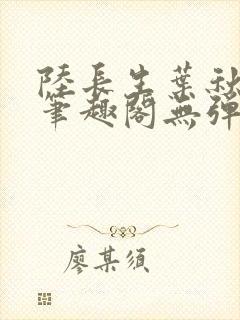 陸長生葉秋
筆趣閣無彈
廖某須